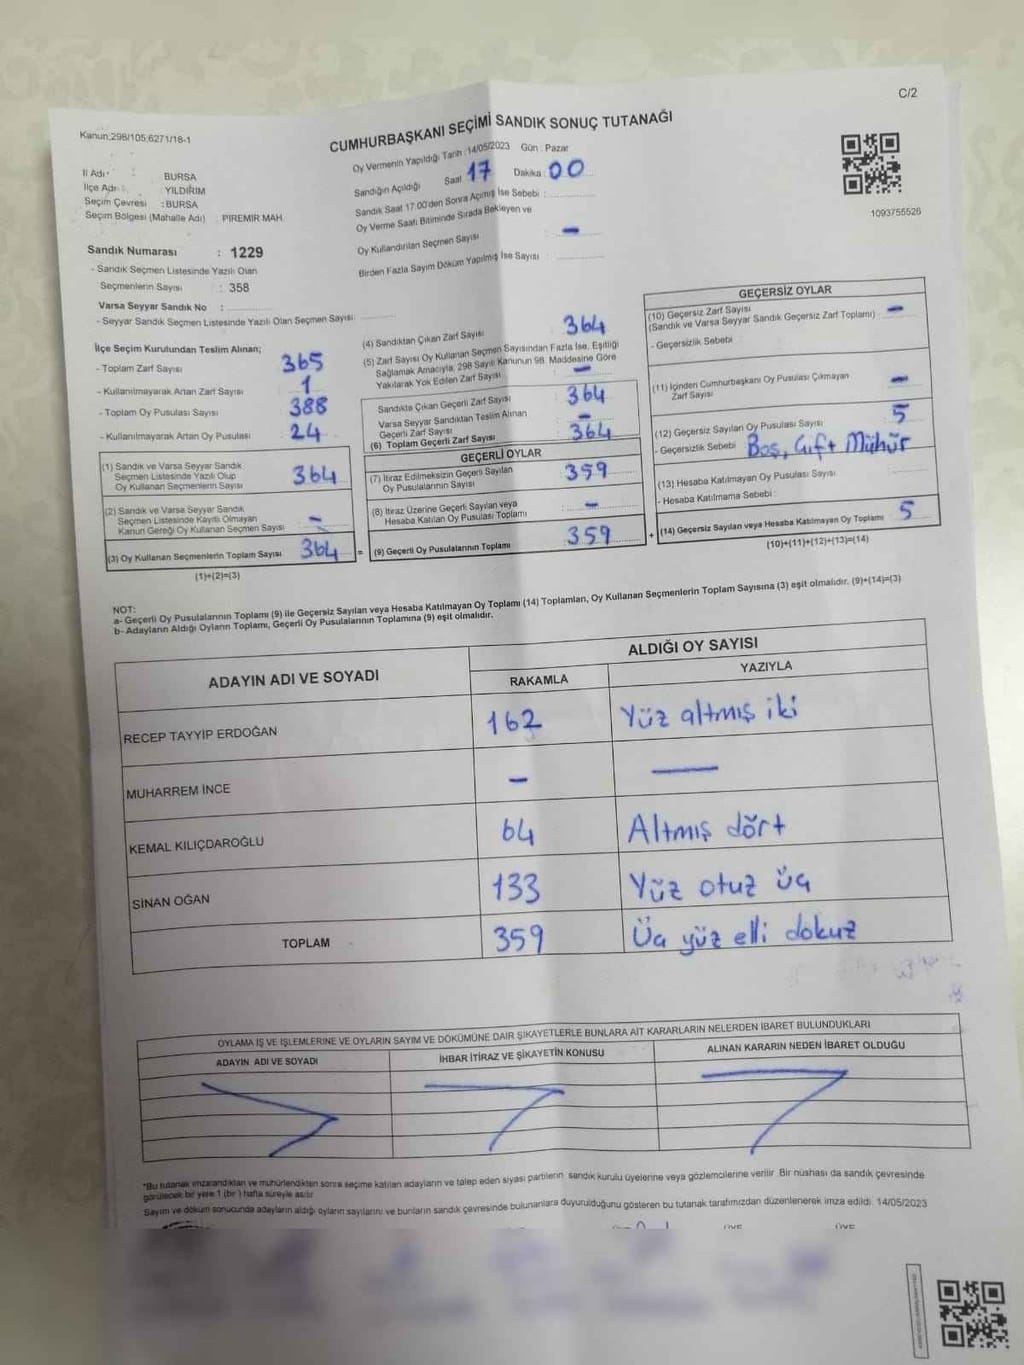 C/2
Kanun:298/105,6271/18-1
CUMHURBAŞKANI SEÇİMİ SANDIK SONUÇ TUTANAĞI
Oy Vermenin Yapıldığı Tarih : 14/05/2023 Gün : Pazar
Sandığın Açıldığı Saat 17 Dakika : 00
Sandık Saat 17:00'den Sonra Açılmış İse Sebebi :
Oy Verme Saati Bitiminde Sırada Bekleyen ve
Oy Kullandırılan Seçmen Sayısı : -
Birden Fazla Sayım Döküm Yapılmış İse Sayısı :
1093755526
İl Adı : BURSA
İlçe Adı : YILDIRIM
Seçim Çevresi : BURSA
Seçim Bölgesi (Mahalle Adı) : PIREMIR MAH.
Sandık Numarası : 1229
- Sandık Seçmen Listesinde Yazılı Olan
Seçmenlerin Sayısı : 358
Varsa Seyyar Sandık No :
- Seyyar Sandık Seçmen Listesinde Yazılı Olan Seçmen Sayısı:
İlçe Seçim Kurulundan Teslim Alınan;
- Toplam Zarf Sayısı : 365
- Kullanılmayarak Artan Zarf Sayısı 1
- Toplam Oy Pusulası Sayısı 388
- Kullanılmayarak Artan Oy Pusulası : 24
(1) Sandık ve Varsa Seyyar Sandık
Seçmen Listesinde Yazılı Olup
Oy Kullanan Seçmenlerin Sayısı 364
(2) Sandık ve Varsa Seyyar Sandık
Seçmen Listesinde Kayıtlı Olmayan
Kanun Gereği Oy Kullanan Seçmen Sayısı -
(3) Oy Kullanan Seçmenlerin Toplam Sayısı 364 =
(1)+(2)=(3)
(4) Sandıktan Çıkan Zarf Sayısı : 364
(5) Zarf Sayısı Oy Kullanan Seçmen Sayısından Fazla İse, Eşitliği
Sağlamak Amacıyla, 298 Sayılı Kanunun 98. Maddesine Göre
Yakılarak Yok Edilen Zarf Sayısı : -
Sandıkta Çıkan Geçerli Zarf Sayısı : 364
Varsa Seyyar Sandıktan Teslim Alınan
Geçerli Zarf Sayısı : -
(6) Toplam Geçerli Zarf Sayısı : 364
GEÇERLİ OYLAR
(7) İtiraz Edilmeksizin Geçerli Sayılan
Oy Pusulalarının Sayısı : 359
(8) İtiraz Üzerine Geçerli Sayılan veya
Hesaba Katılan Oy Pusulası Toplamı : -
(9) Geçerli Oy Pusulalarının Toplamı : 359 +
GEÇERSİZ OYLAR
(10) Geçersiz Zarf Sayısı
(Sandık ve Varsa Seyyar Sandık Geçersiz Zarf Toplamı) : -
- Geçersizlik Sebebi :
(11) İçinden Cumhurbaşkanı Oy Pusulası Çıkmayan
Zarf Sayısı : -
(12) Geçersiz Sayılan Oy Pusulası Sayısı : 5
- Geçersizlik Sebebi : Boş, Çift Mühür
(13) Hesaba Katılmayan Oy Pusulası Sayısı :
- Hesaba Katılmama Sebebi :
(14) Geçersiz Sayılan veya Hesaba Katılmayan Oy Toplamı : 5
(10)+(11)+(12)+(13)=(14)
NOT:
a- Geçerli Oy Pusulalarının Toplamı (9) ile Geçersiz Sayılan veya Hesaba Katılmayan Oy Toplamı (14) Toplamları, Oy Kullanan Seçmenlerin Toplam Sayısına (3) eşit olmalıdır. (9)+(14)=(3)
b- Adayların Aldığı Oyların Toplamı, Geçerli Oy Pusulalarının Toplamına (9) eşit olmalıdır.
ADAYIN ADI VE SOYADI ALDIĞI OY SAYISI
RAKAMLA YAZIYLA
RECEP TAYYİP ERDOĞAN 162 Yüz altmış iki
MUHARREM İNCE - —
KEMAL KILIÇDAROĞLU 64 Altmış dört
SİNAN OĞAN 133 Yüz otuz üç
TOPLAM 359 Üç yüz elli dokuz
OYLAMA İŞ VE İŞLEMLERİNE VE OYLARIN SAYIM VE DÖKÜMÜNE DAİR ŞİKAYETLERLE BUNLARA AİT KARARLARIN NELERDEN İBARET BULUNDUKLARI
ADAYIN ADI VE SOYADI İHBAR İTİRAZ VE ŞİKAYETİN KONUSU ALINAN KARARIN NEDEN İBARET OLDUĞU
*Bu tutanak imzalandıktan ve mühürlendikten sonra seçime katılan adayların ve talep eden siyasi partilerin sandık kurulu üyelerine veya gözlemcilerine verilir. Bir nüshası da sandık çevresinde
görülecek bir yere 1 (bir) hafta süreyle asılır.
Sayım ve döküm sonucunda adayların aldığı oyların sayılarını ve bunların sandık çevresinde bulunanlara duyurulduğunu gösteren bu tutanak tarafımızdan düzenlenerek imza edildi. 14/05/2023
ÜYE ÜYE